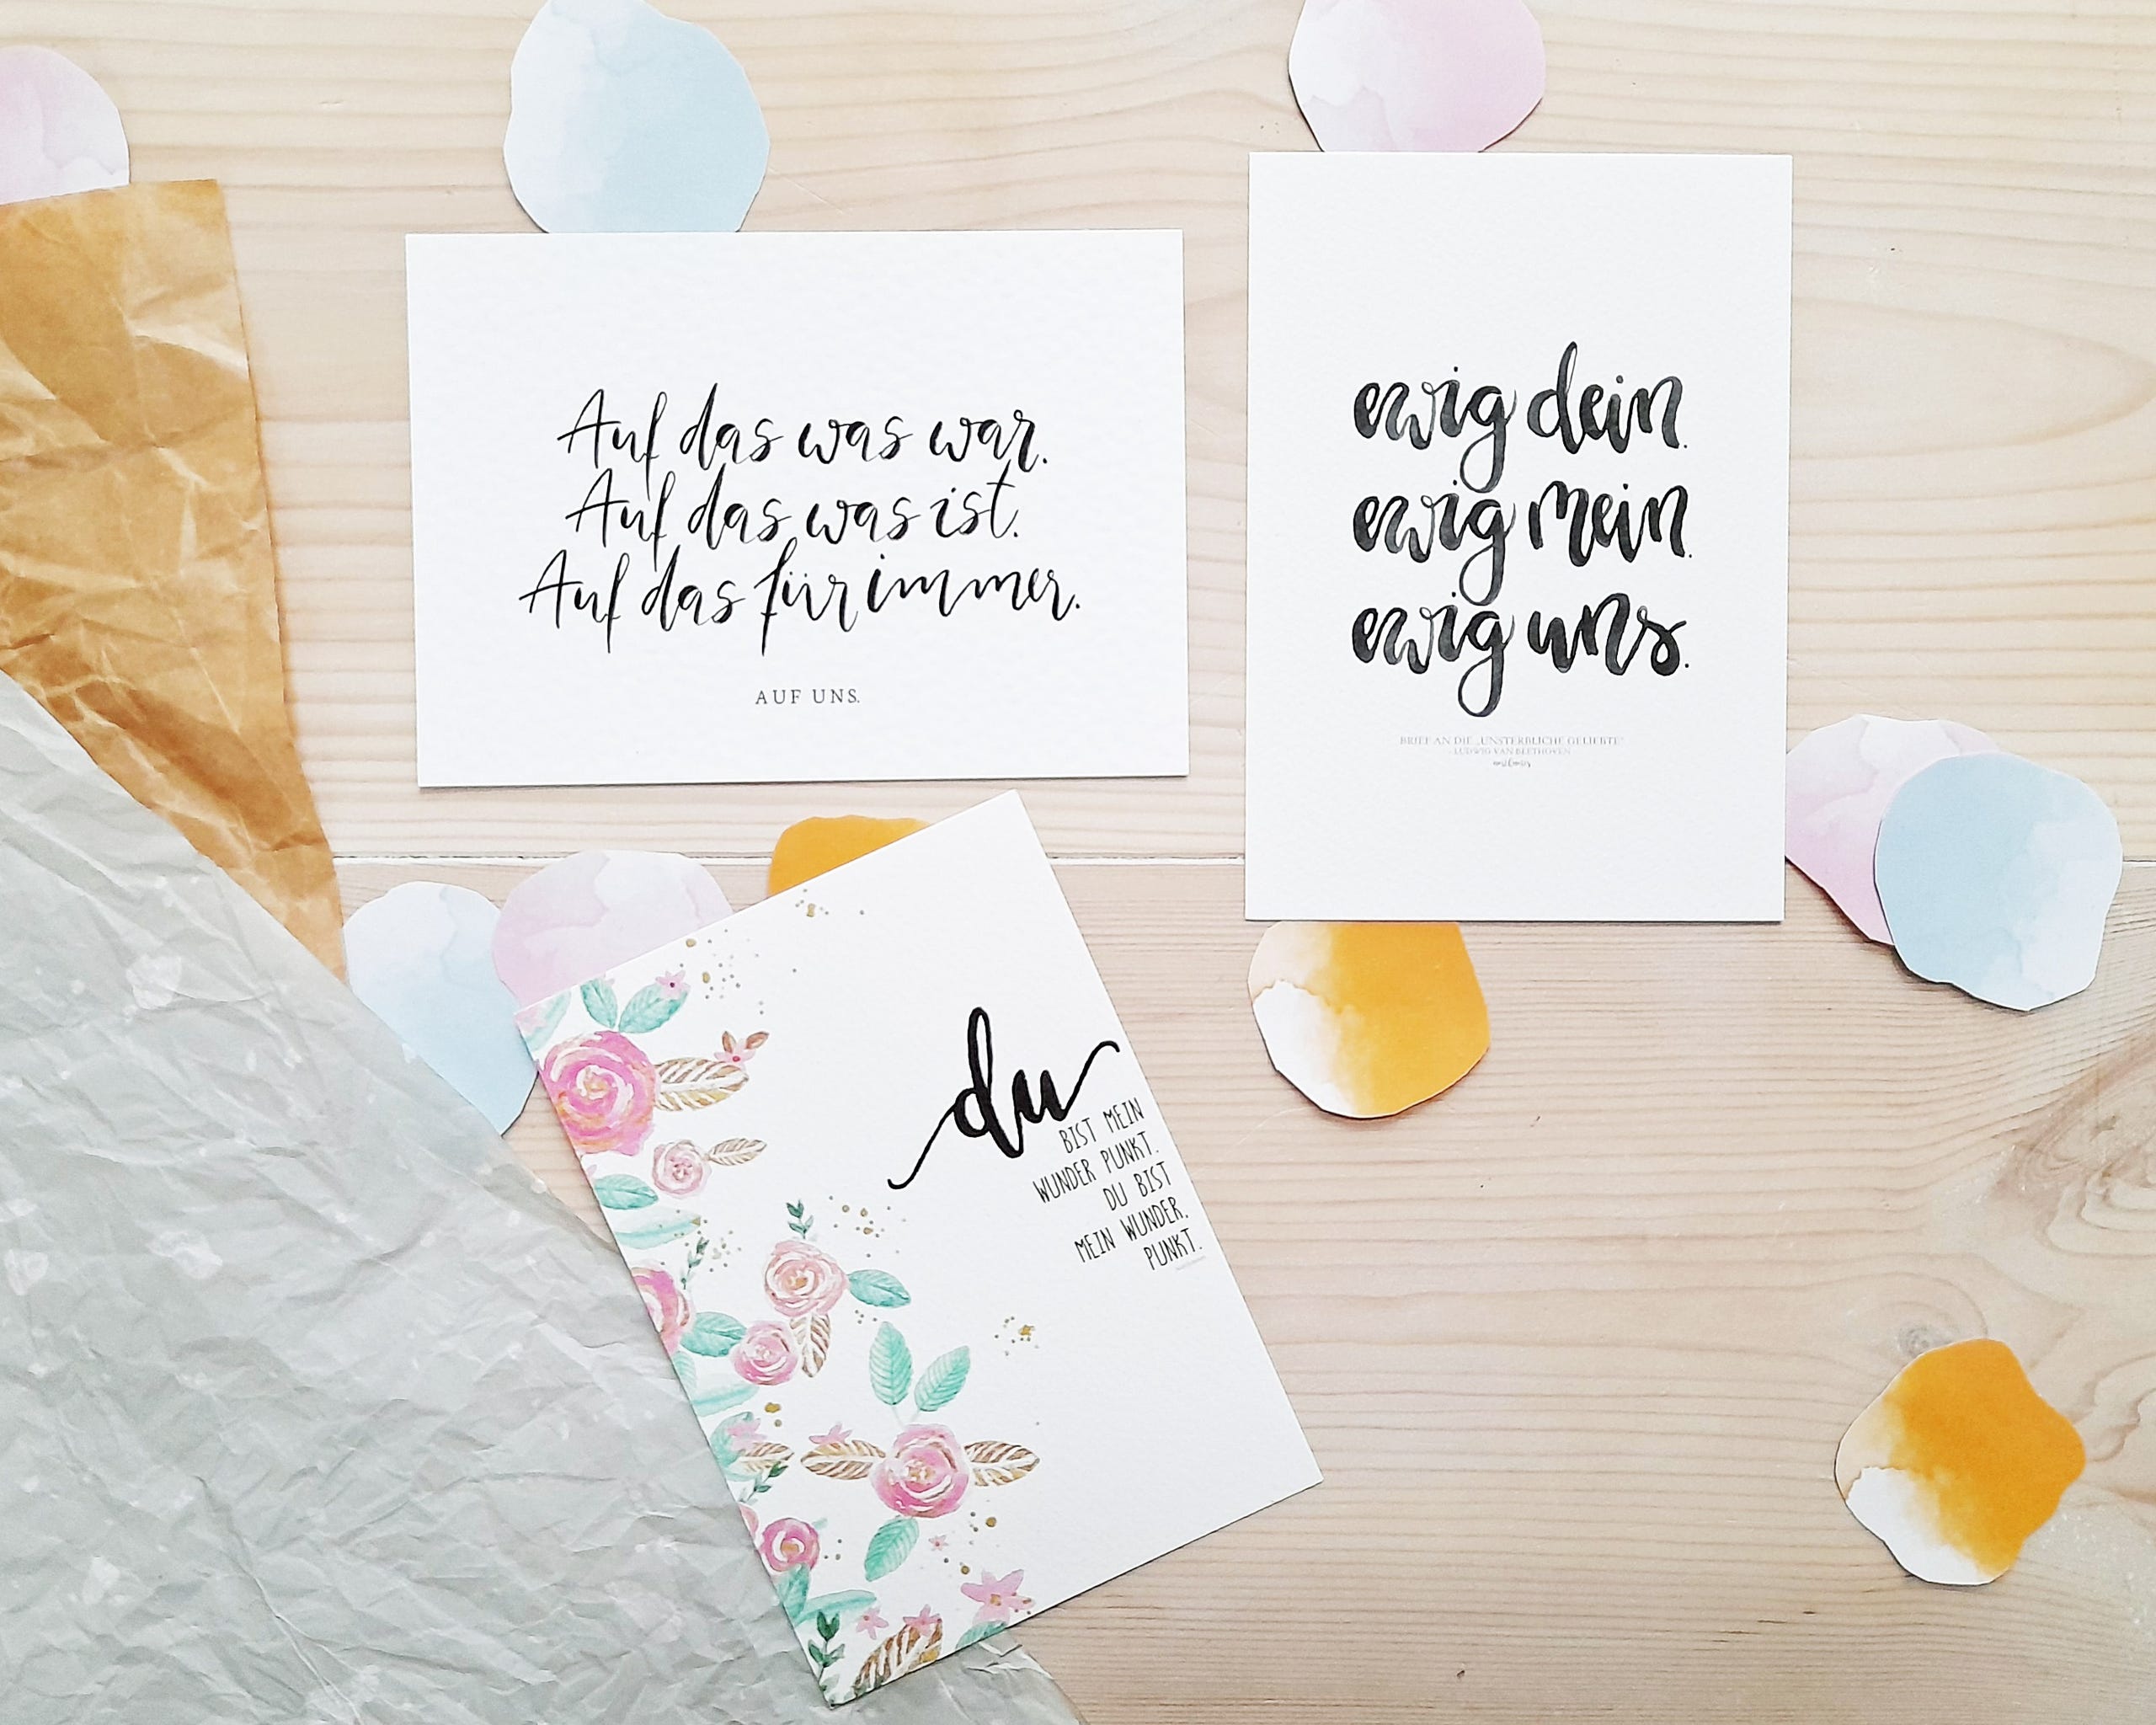 Auf das was war.
Auf das was ist.
Auf das für immer.
AUF UNS.
ewig dein.
ewig mein.
ewig uns.
BRIEF AN DIE „UNSTERBLICHE GELIEBTE"
- LUDWIG VAN BEETHOVEN
du
BIST MEIN
WUNDER PUNKT.
DU BIST
MEIN WUNDER.
PUNKT.